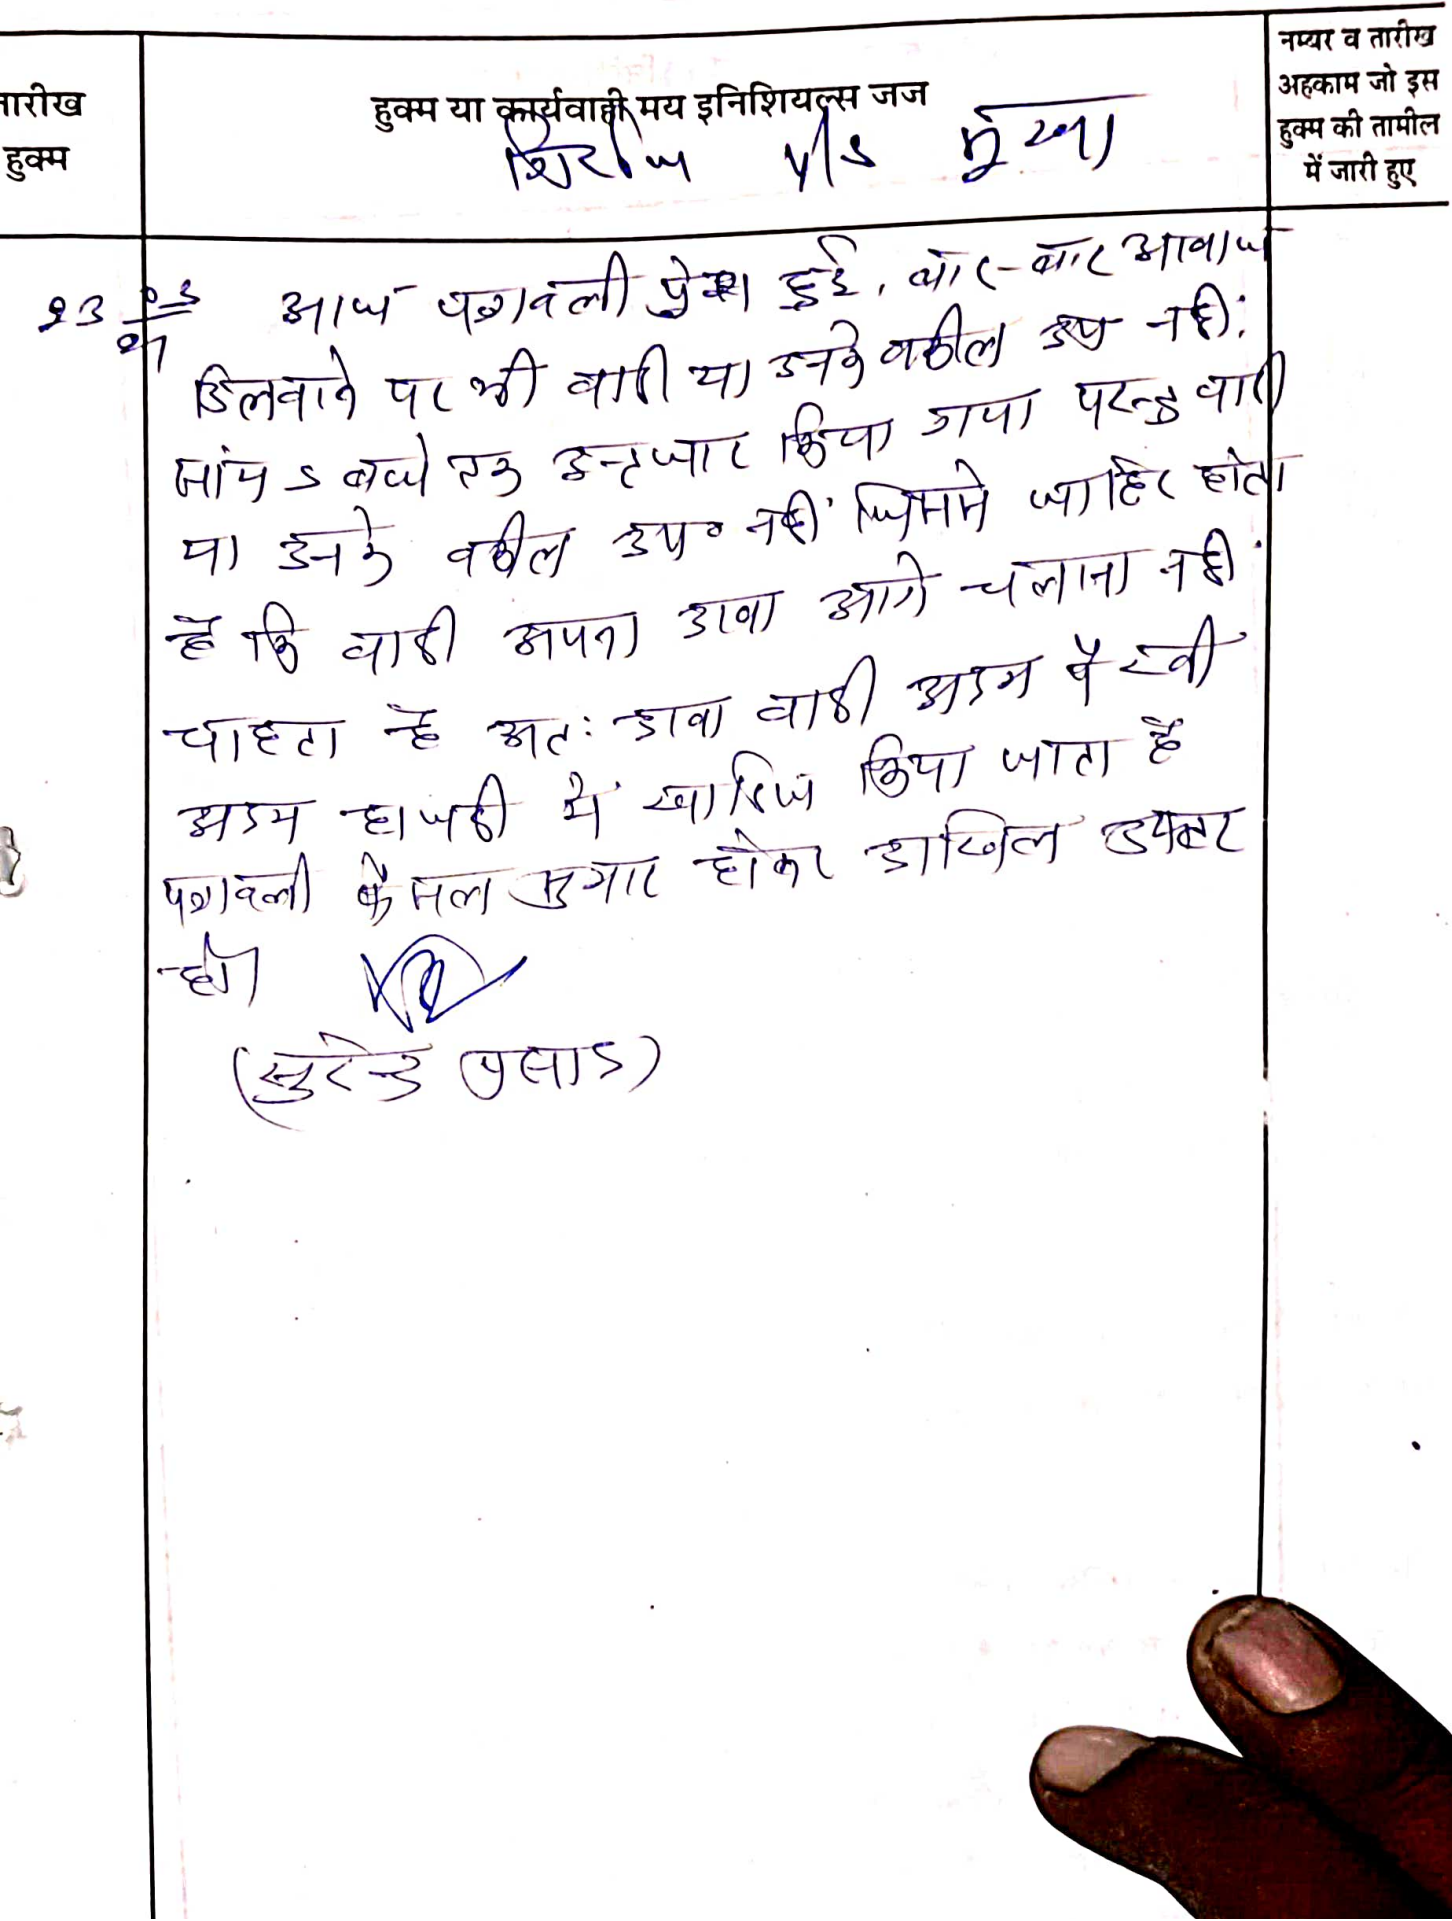 तारीख
हुक्म
हुक्म या कार्यवाही मय इनिशियल्स जज
नम्बर व तारीख
अहकाम जो इस
हुक्म की तामील
में जारी हुए
v/s
23 03
आज पत्रावली पेश हुई, बार-बार आवाज
दिलवाने पर भी वादी या उनके वकील उप नहीं।
सांय 5 बजे तक इन्तजार किया गया परन्तु वादी
या उनके वकील उप० नहीं जिससे जाहिर होता
है कि वादी अपना दावा आगे चलाना नहीं
चाहता है अतः दावा वादी अदम पैरवी
अदम हाजरी में खारिज किया जाता है
पत्रावली फैसल शुमार होकर दाखिल दफ्तर
हो।
(सुरेन्द्र प्रसाद)